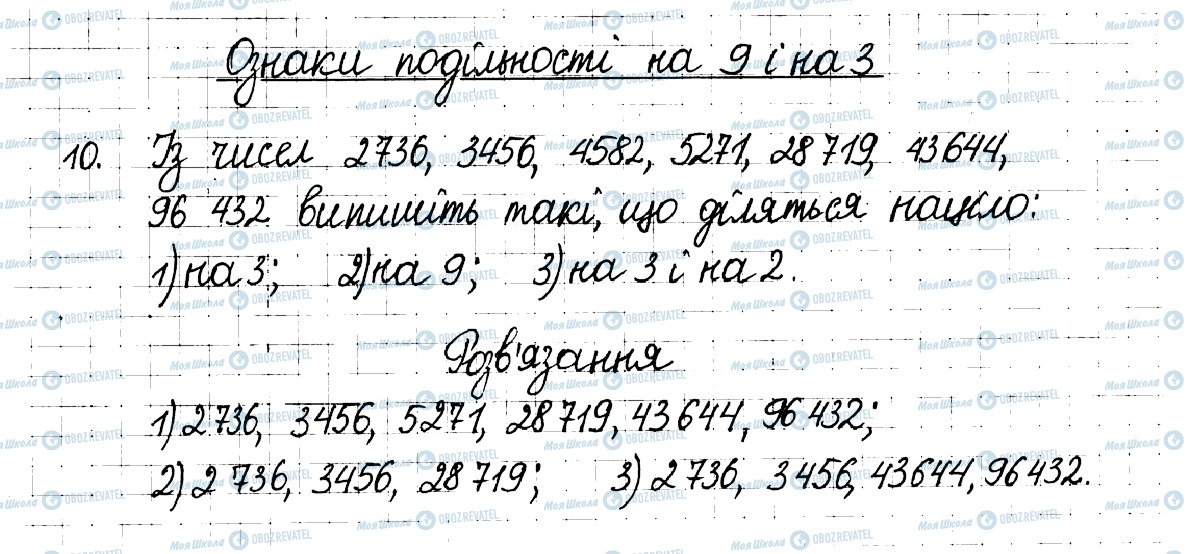 Ознаки подільності на 9 і на 3
10. Із чисел 2736, 3456, 4582, 5271, 28 719, 43 644,
96 432 випишіть такі, що діляться націло:
1) на 3; 2) на 9; 3) на 3 і на 2.
Розв'язання
1) 2 736, 3456, 5271, 28 719, 43 644, 96 432;
2) 2 736, 3456, 28 719; 3) 2 736, 3 456, 43644, 96 432.
Моя Школа OBOZREVATEL